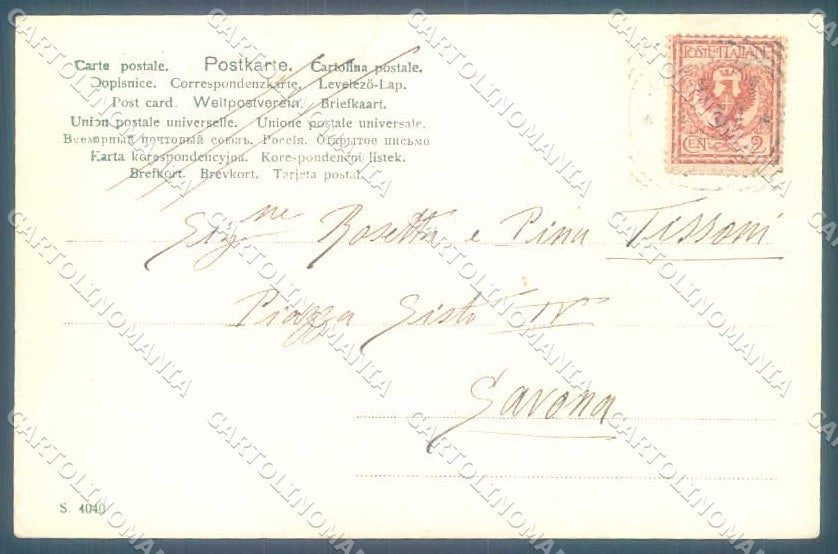 Carte postale. Postkarte. Cartolina postale.
Dopisnice. Correspondenzkarte. Levelező-Lap.
Post card. Weltpostverein. Briefkaart.
Union postale universelle. Unione postale universale.
Всемірный почтовый союзъ. Россія. Открытое письмо
Karta korespondencyjna. Korespondenčni listek.
Brefkort. Brevkort. Tarjeta postal.
POSTE·ITALIANE
CENT 2
Sigʳⁿᵉ Rosetta e Pina Tissoni
Piazza Sisto IV
Savona
S. 4040
CARTOLINOMANIA